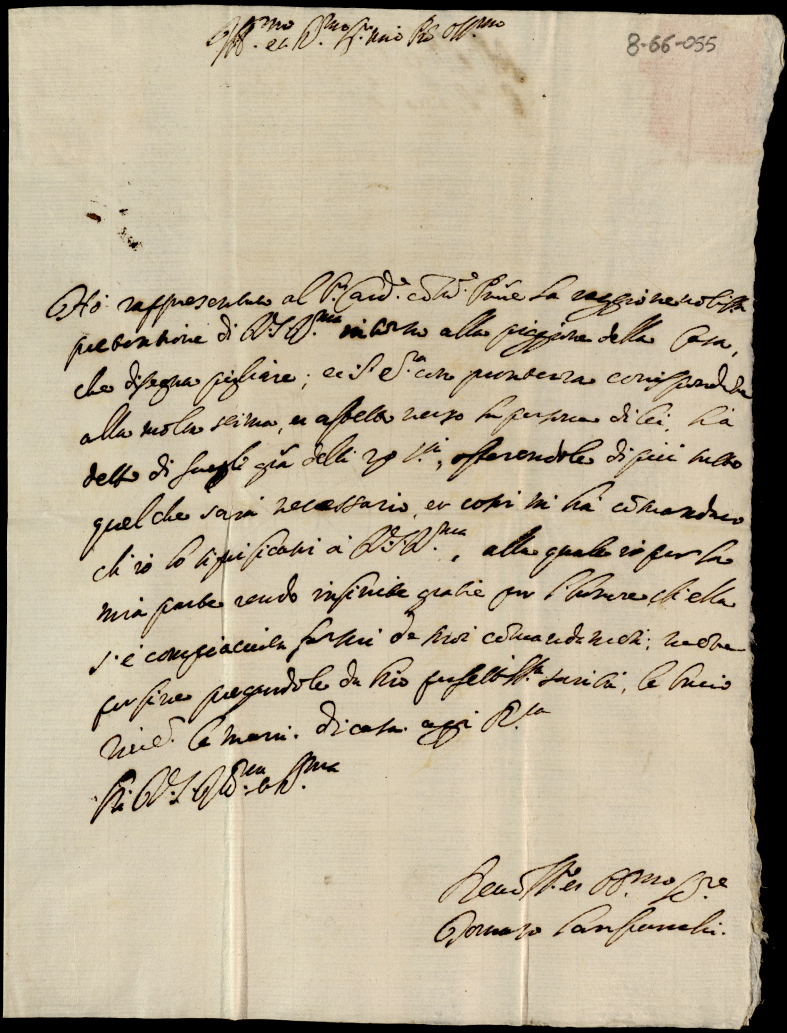 Ill.mo et R.mo S.r mio P.ro Oss.mo
8-66-055
Hò rappresentato al S.r Card.e com.e la raggionevoliss.ma
pretentione di V.S.R.ma intorno alla piggione della Casa,
che disegna pigliare; et S. E.za con prontezza corrispondente
alla molta stima, et affetto verso la persona di lei, hà
detto di farle gra delli 20 offerendole di più tutto
quel che sarà necessario, et così mi hà comandato
ch'io lo significassi à V.S.R.ma, alla quale io per la
mia parte rendo infinite gratie per l'honore ch'ella
s'è compiaciuta farmi de suoi comandamenti; mentre
per fine pregandole da Dio perfettiss.ma sanità, le bacio
le mani. Di casa oggi
Di V.S. Ill.ma e R.ma
Devotiss.o et Obb.mo Ser.re
Tomaso